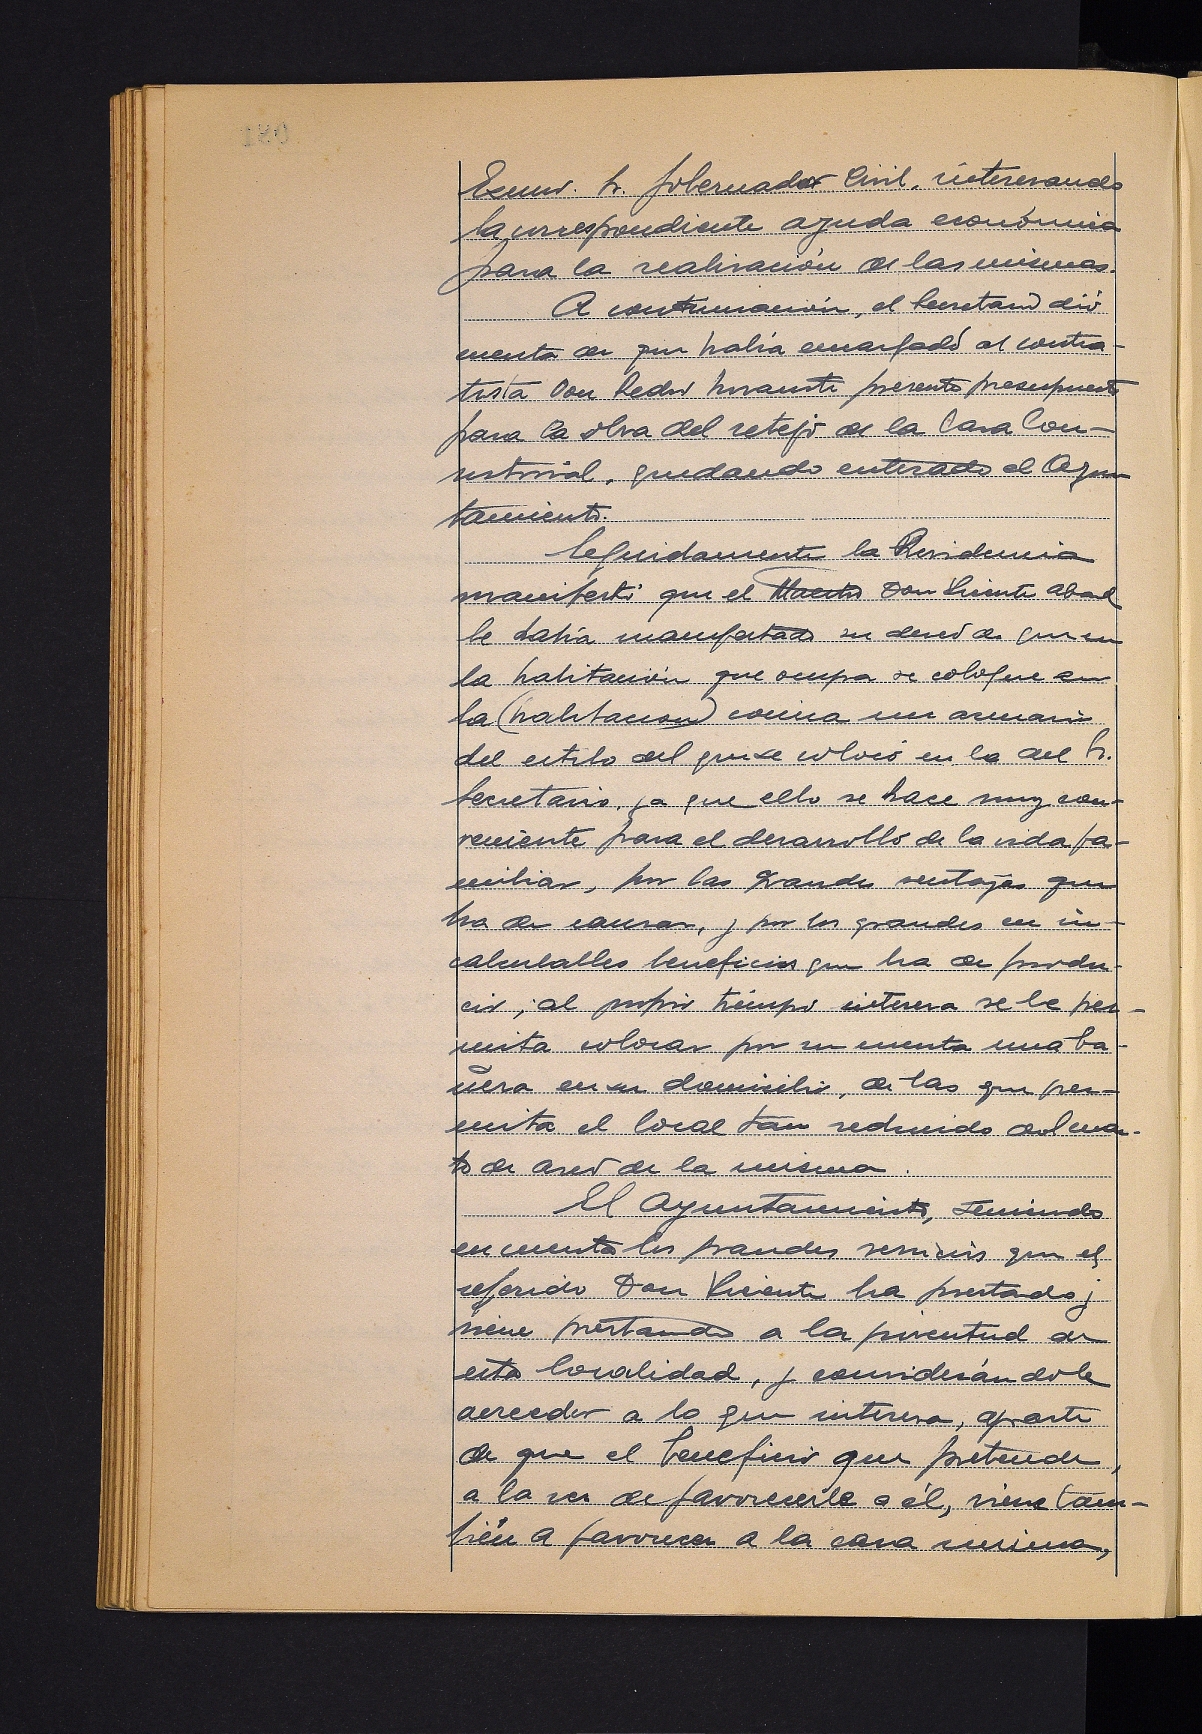 Excmo. Sr. Gobernador Civil, interesando
la correspondiente ayuda económica
para la realización de las mismas.
A continuación, el Secretario dió
cuenta de que había encargado al contra-
tista Don Pedro presente presupuesto
para la obra del retejo de la Casa Con-
sistorial, quedando enterado el Ayun
tamiento.
Seguidamente la Presidencia
manifestó que el Maestro Don Vicente Abad
le había manifestado su deseo de que en
la habitación que ocupa se coloque en
la (habitacion) cocina un armario
del estilo del que se colocó en la del Sr.
Secretario, ya que ello se hace muy con-
veniente para el desarrollo de la vida fa-
miliar, por las grandes ventajas que
ha de causar, y por los grandes en in-
calculables beneficios que ha de produ-
cir; al propio tiempo interesa se le per-
mita colocar por su cuenta una ba-
ñera en su domicilio, de las que per-
mita el local tan reducido del cuar-
to de aseo de la misma.
El Ayuntamiento, teniendo
en cuenta los grandes servicios que el
referido Don Vicente ha prestado y
viene prestando a la juventud de
esta localidad, y considerándole
acreedor a lo que interesa, aparte
de que el beneficio que pretende,
a la vez de favorecerle a él, viene tam-
bién a favorecer a la casa misma,
180